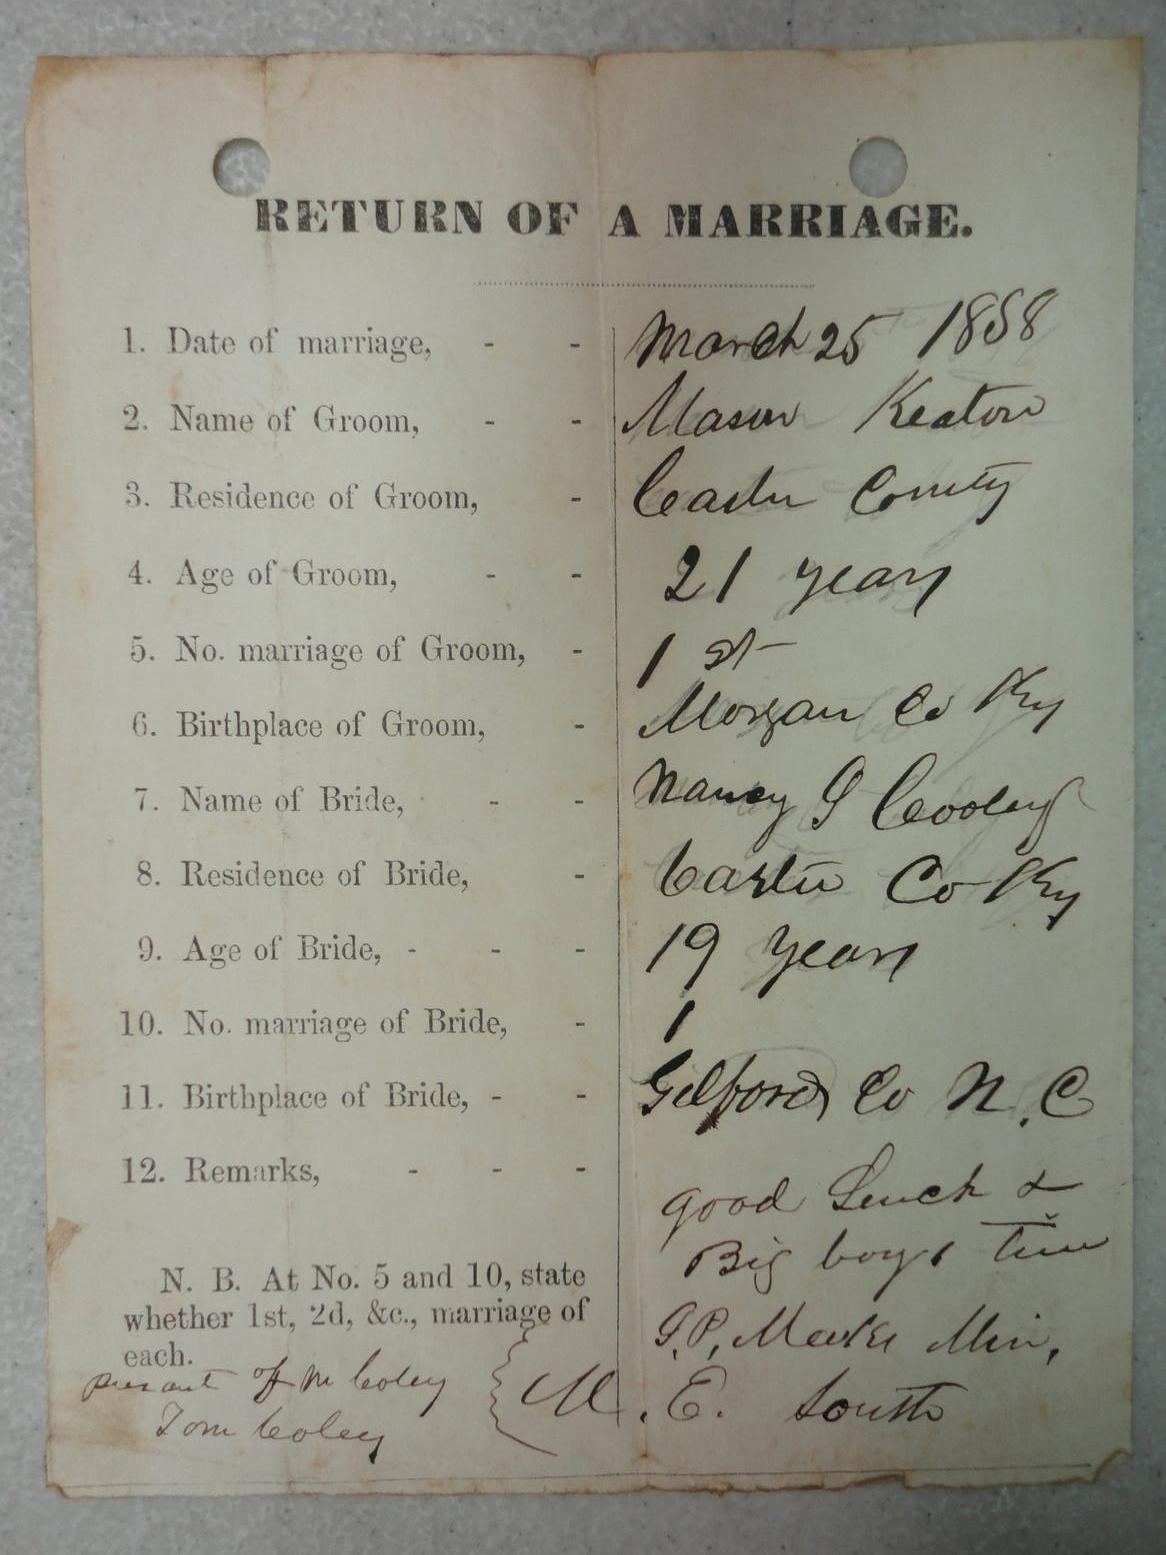 RETURN OF A MARRIAGE.
1. Date of marriage, - - March 25 1858
2. Name of Groom, - - Mason Keaton
3. Residence of Groom, - Carter County
4. Age of Groom, - - 21 years
5. No. marriage of Groom, - 1 st
6. Birthplace of Groom, - Morgan Co Ky
7. Name of Bride, - - Nancy G Cooley
8. Residence of Bride, - Carter Co Ky
9. Age of Bride, - - - 19 years
10. No. marriage of Bride, - 1
11. Birthplace of Bride, - - Gilford Co N. C
12. Remarks, - - -
good Lunch &
Big boys time
N. B. At No. 5 and 10, state
whether 1st, 2d, &c., marriage of
each.
G. P. Min,
M. E. South
presant of M Coley
Tom Coley